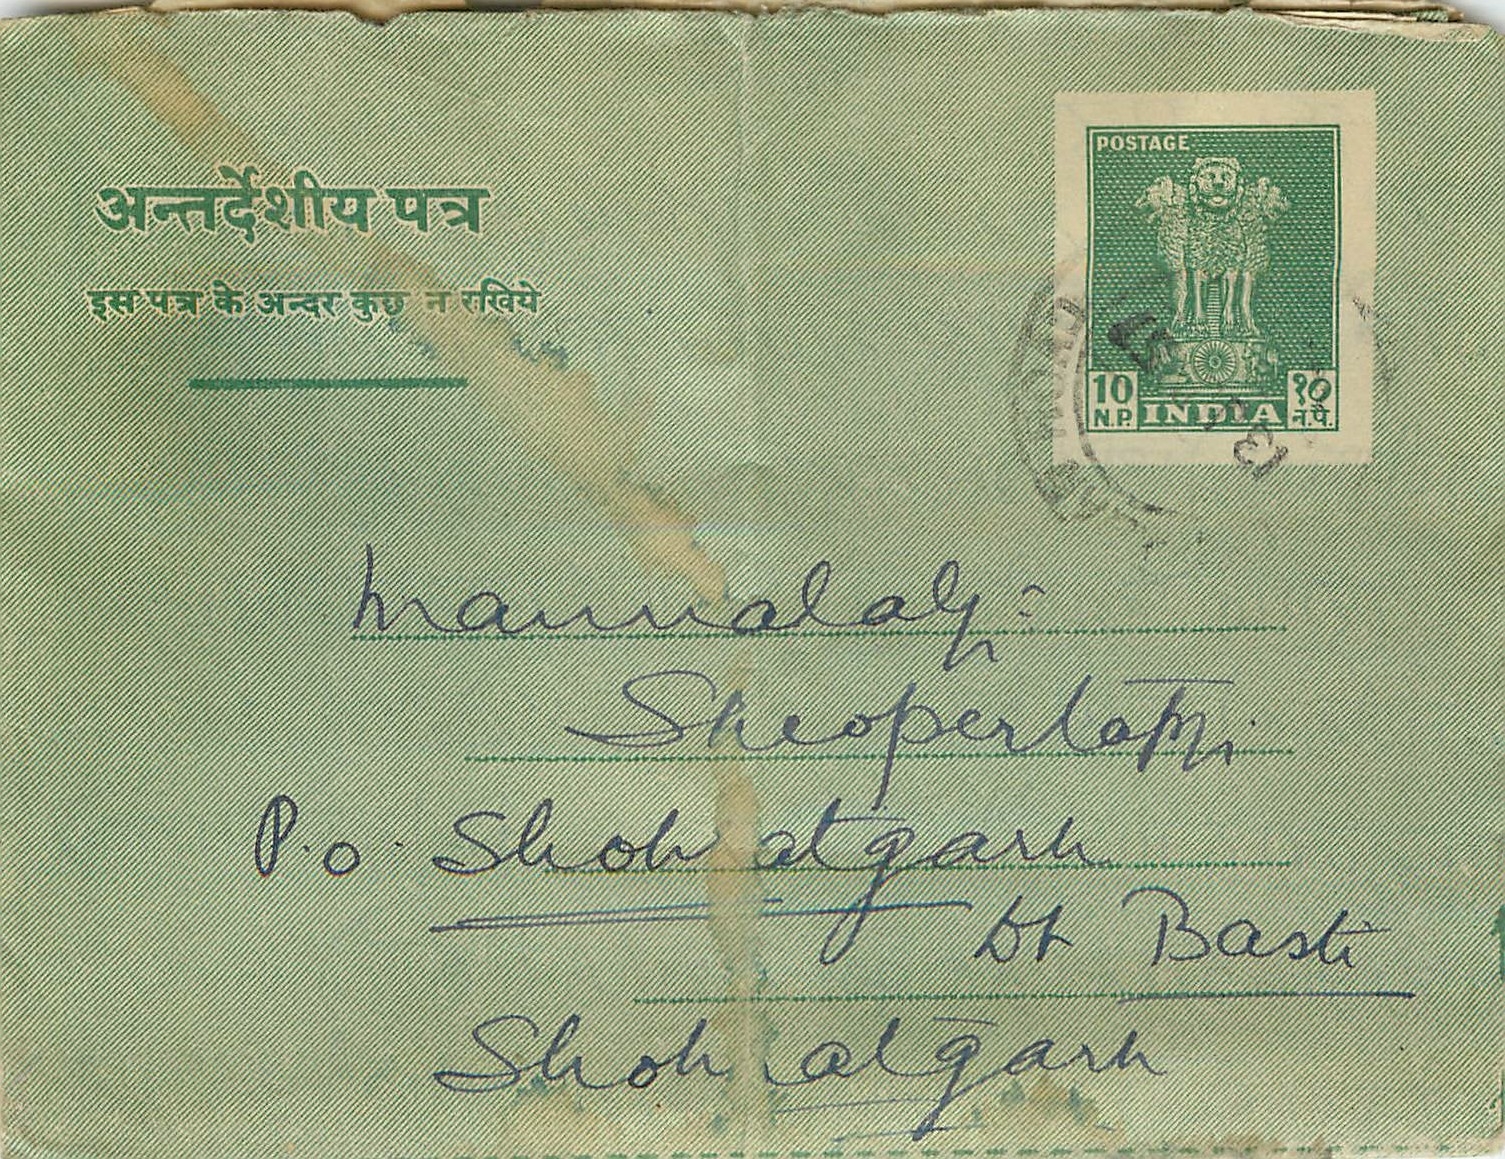 अन्तर्देशीय पत्र
इस पत्र के अन्दर कुछ न रखिये
POSTAGE
10 १०
N.P. INDIA न.पै.
P.o. Shohratgarh
Dt Basti
Shohratgarh